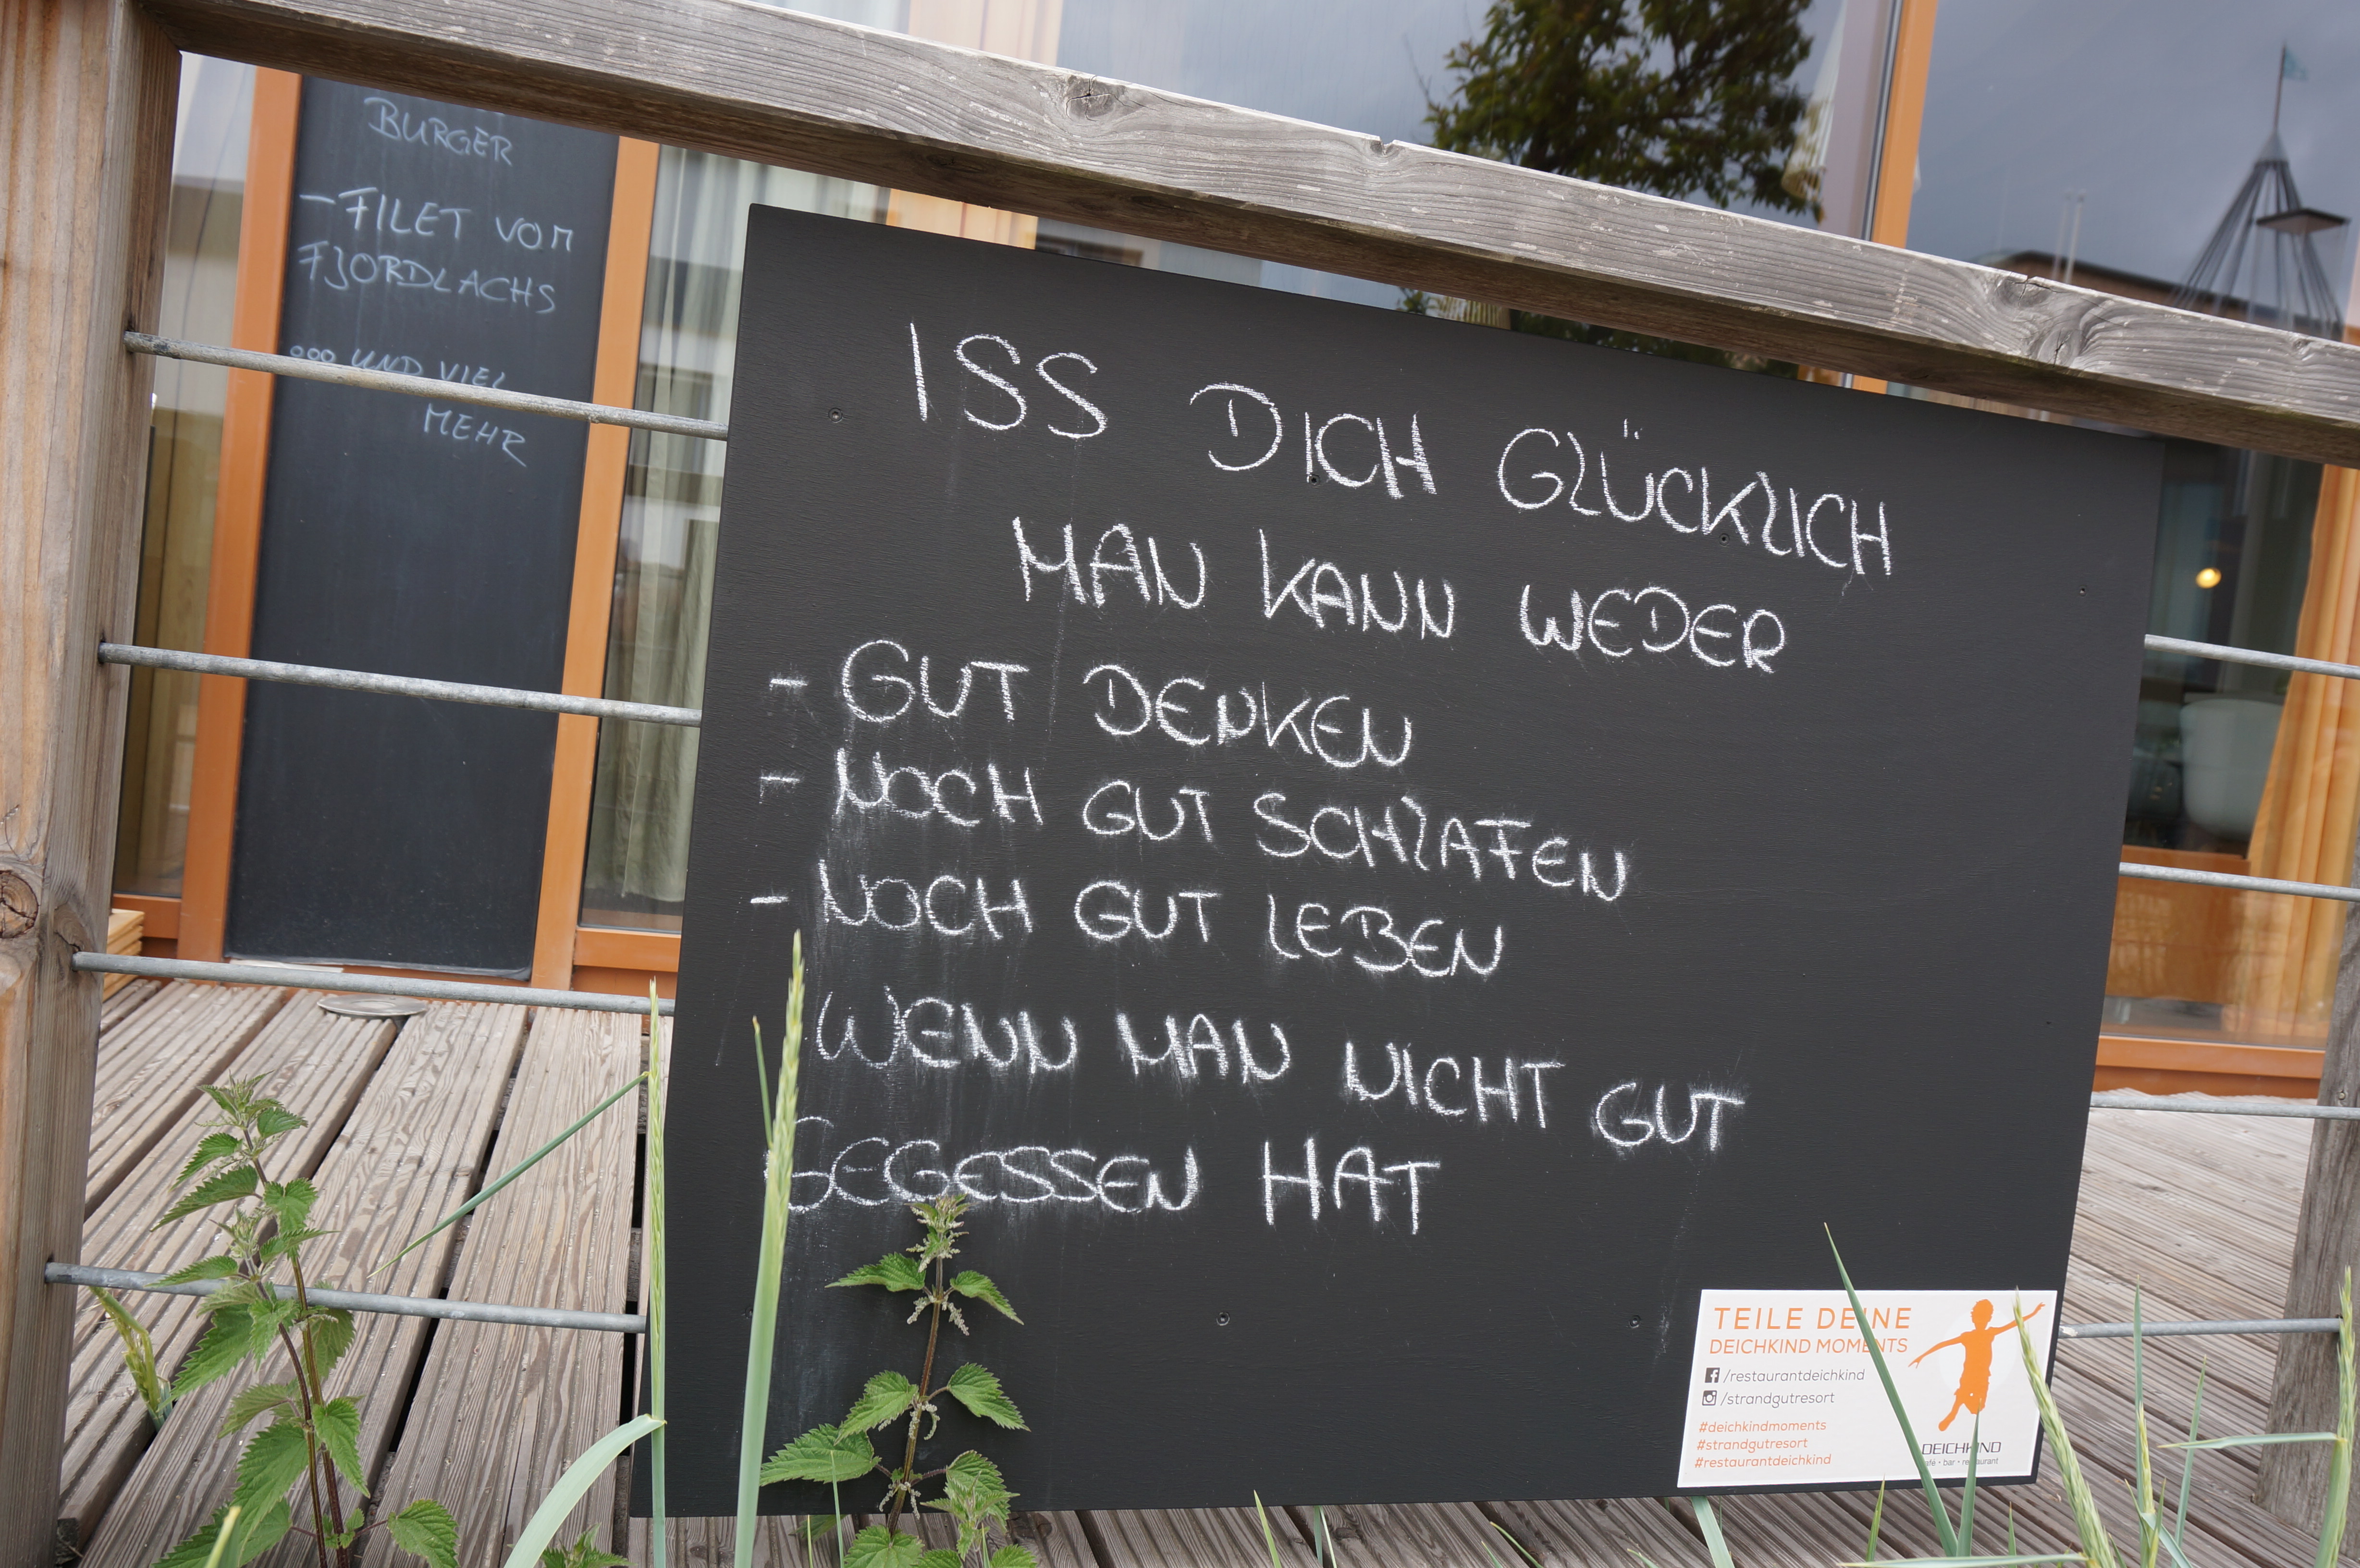 BURGER
- FILET VOM
FJORDLACHS
... UND VIEL
MEHR
ISS DICH GLÜCKLICH
MAN KANN WEDER
- GUT DENKEN
- NOCH GUT SCHLAFEN
- NOCH GUT LEBEN
WENN MAN NICHT GUT
GEGESSEN HAT
TEILE DEINE
DEICHKIND MOMENTS
/restaurantdeichkind
/strandgutresort
#deichkindmoments
#strandgutresort
#restaurantdeichkind
DEICHKIND
café • bar • restaurant